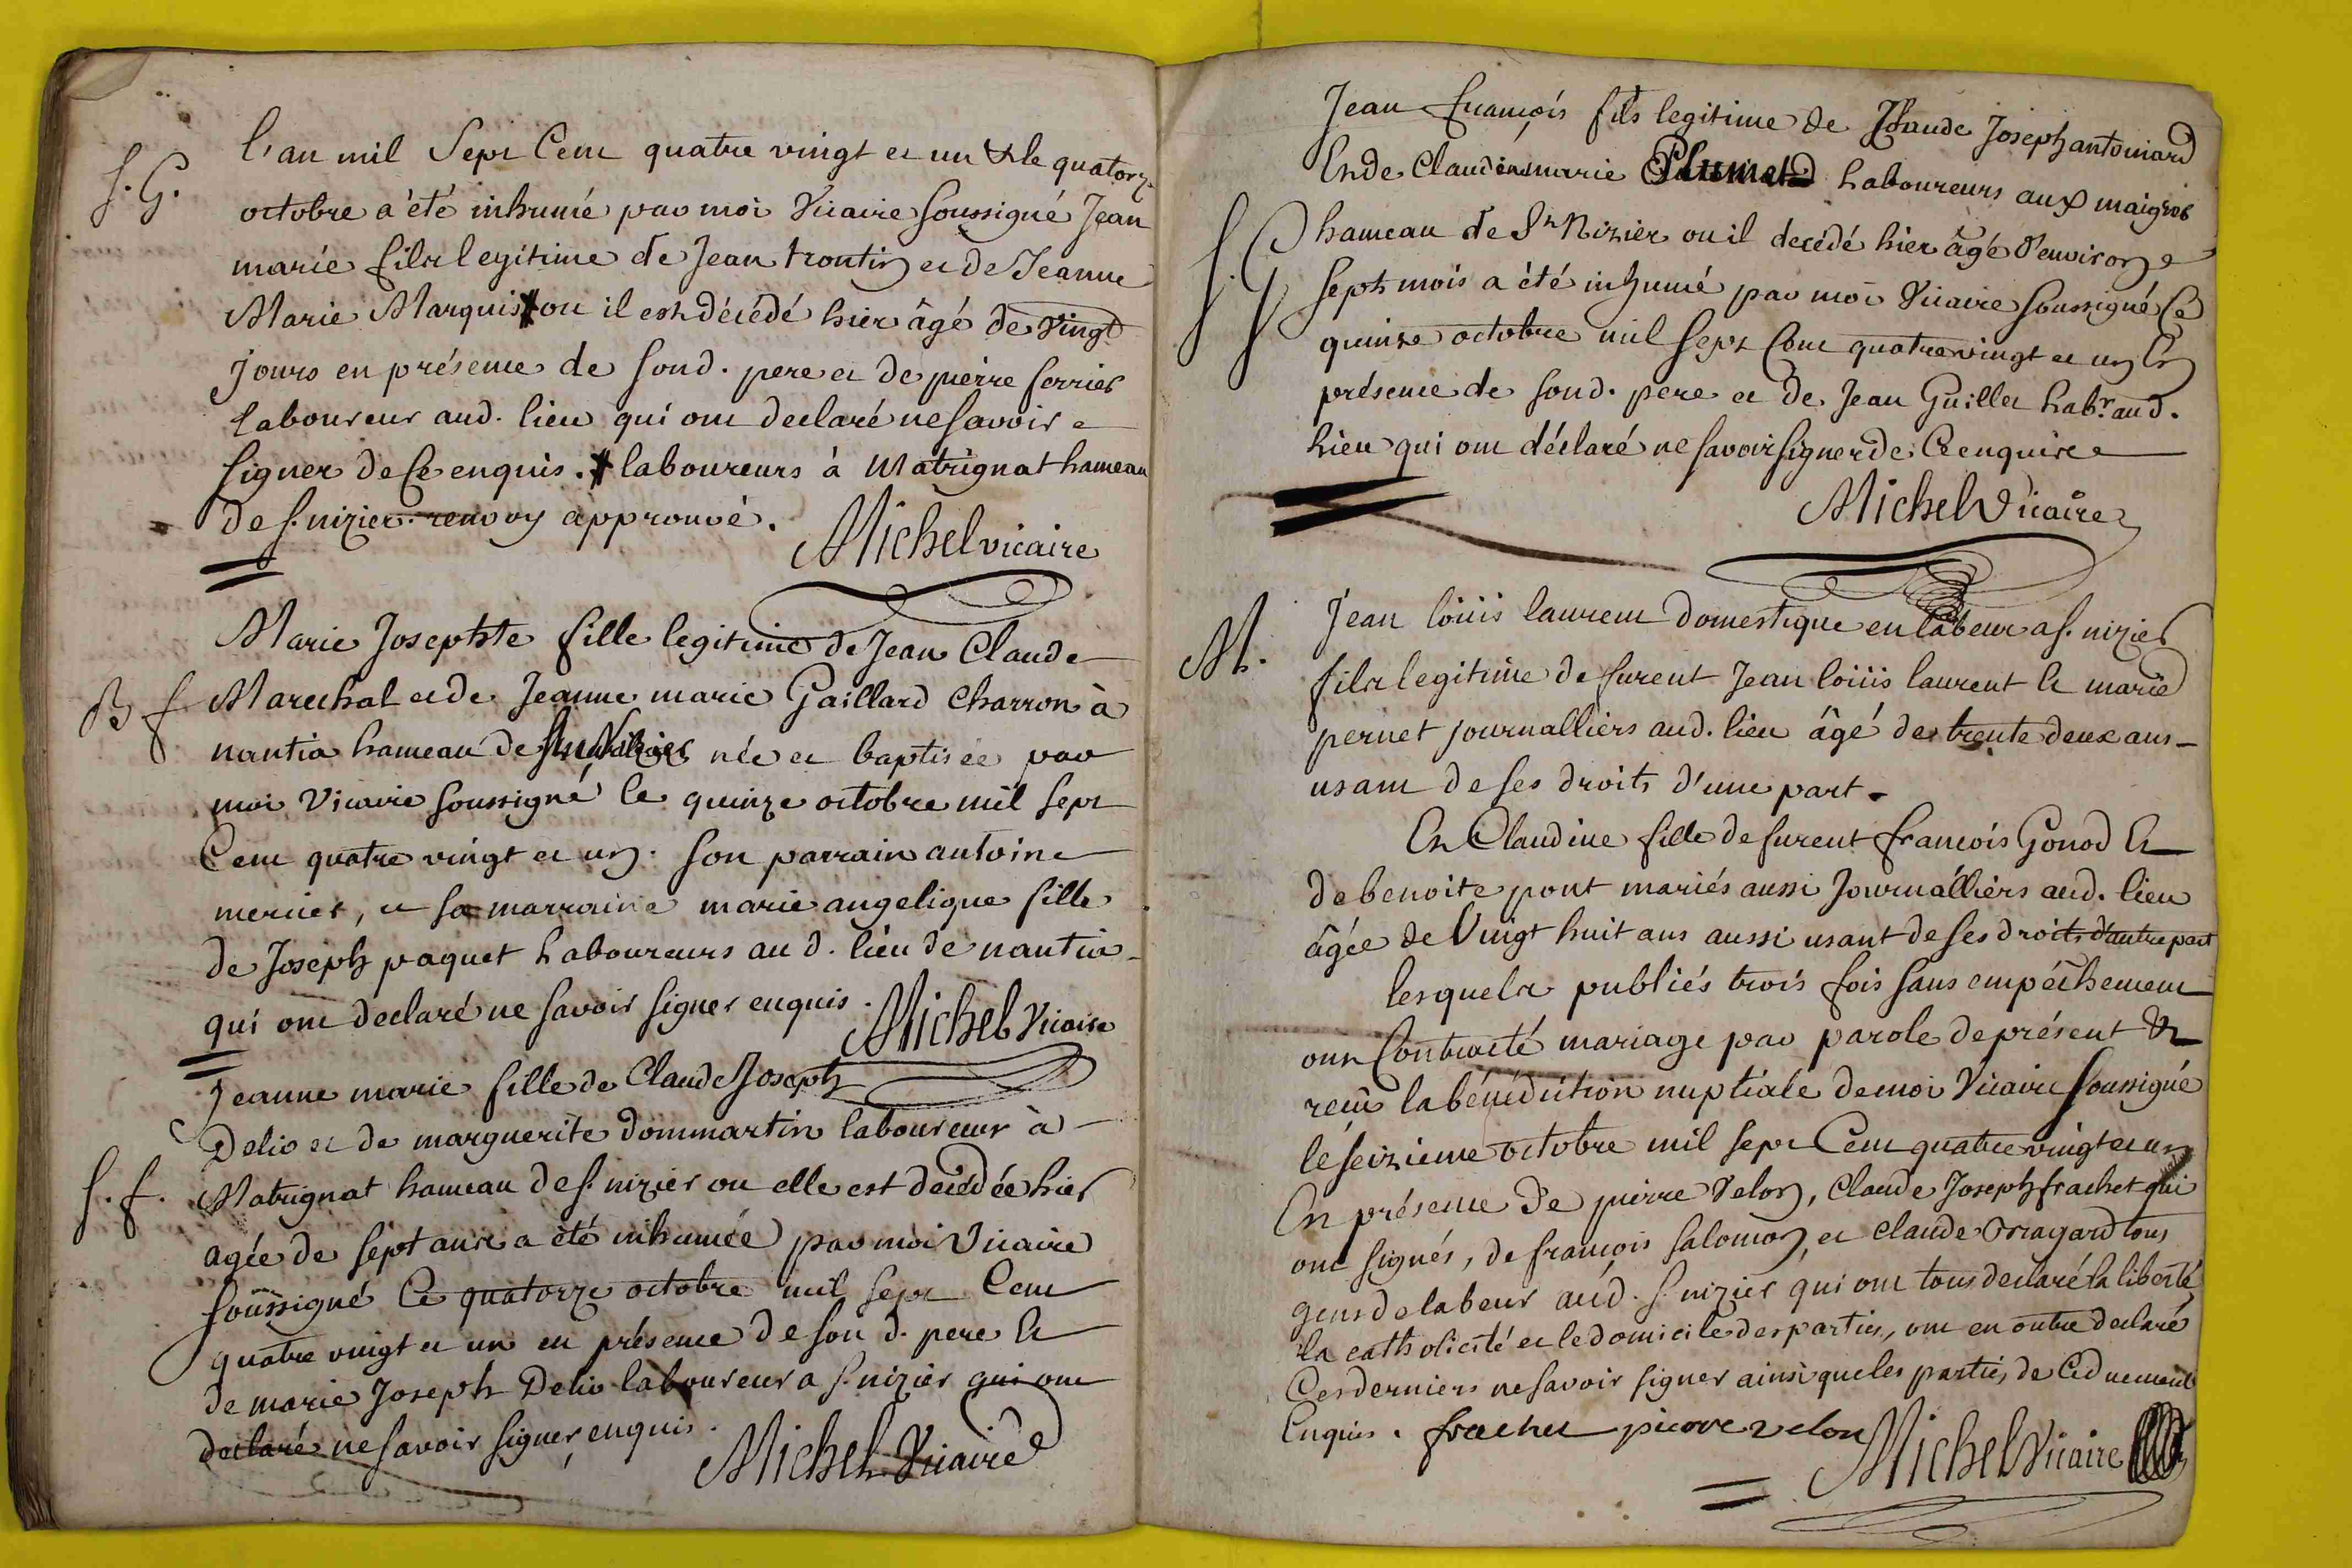 L'an mil Sept Cent quatre vingt et un & le quatorz.
S. G.
octobre a été inhumé par moi Vicaire soussigné Jean
marie fils legitime de Jean trontin et de Jeanne
Marie Marquis # ou il est décédé hier âgé de vingt
Jours en présence de sond. pere et de pierre ferrier
laboureur aud. lieu qui ont declaré ne savoir
signer de Ce enquis. # laboureurs à Matrignat hameau
de s. nizier. renvoy approuvé.
Michel vicaire
Marie Josephte fille legitime de Jean Claude
B f
Marechal et de Jeanne marie Gaillard Charron à
nantia hameau de née et baptisée par
moi Vicaire soussigné le quinze octobre mil sept
Cent quatre vingt et un. son parrain antoine
mercier, et sa marraine marie angelique fille
de Joseph paquet Laboureurs au d. lieu de nantia
qui ont declaré ne savoir signer enquis.
Michel Vicaire
Jeanne marie fille de Claude Joseph
Delio et de marguerite dommartin laboureur à
S. f.
Matrignat hameau de s. nizier ou elle est décédée hier
agée de sept ans a été inhumée par moi Vicaire
soussigné Ce quatorze octobre mil sept Cent
quatre vingt et un en présence de son d. pere Et
de marie Joseph Delio laboureur a s. nizier qui ont
declaré ne savoir signer enquis.
Michel Vicaire
Jean François fils legitime de Claude Joseph antoinard
Et de Claudine marie Plumet Laboureurs aux maigres
S. G
hameau de St Nizier ou il decédé hier âgé d'environ
sept mois a été inhumé par moi Vicaire soussigné Ce
quinze octobre mil sept Cent quatre vingt et un En
présence de sond. pere et de Jean Guillet habt. aud.
Lieu qui ont déclaré ne savoir signer de Ce enquis
Michel Vicaire
M.
Jean loüis laurent domestique en labeur a s. nizier
fils legitime de furent Jean loüis laurent Et marie
pernet journalliers aud. lieu âgé de trente deux ans
usant de ses droits d'une part.
Et Claudine fille de furent françois Gonod Et
de benoite pont mariés aussi Journalliers aud. lieu
âgée de Vingt huit ans aussi usant de ses droits d'autre part
lesquels publiés trois fois sans empéchement
ont Contracté mariage par parole de présent &
reçu la bénédiction nuptiale de moi Vicaire soussigné
le seizieme octobre mil sept Cent quatre vingt et un
En présence de pierre Velon, Claude Joseph frachet qui
ont signés, de françois salomon, et claude tous
gens de labeur aud. s. nizier qui ont tous declaré la liberté
la catholicité et le domicile des parties, ont en outre declaré
Ces derniers ne savoir signer ainsi que les parties, de Ce duement
Enquis. frachet piere velon
Michel Vicaire